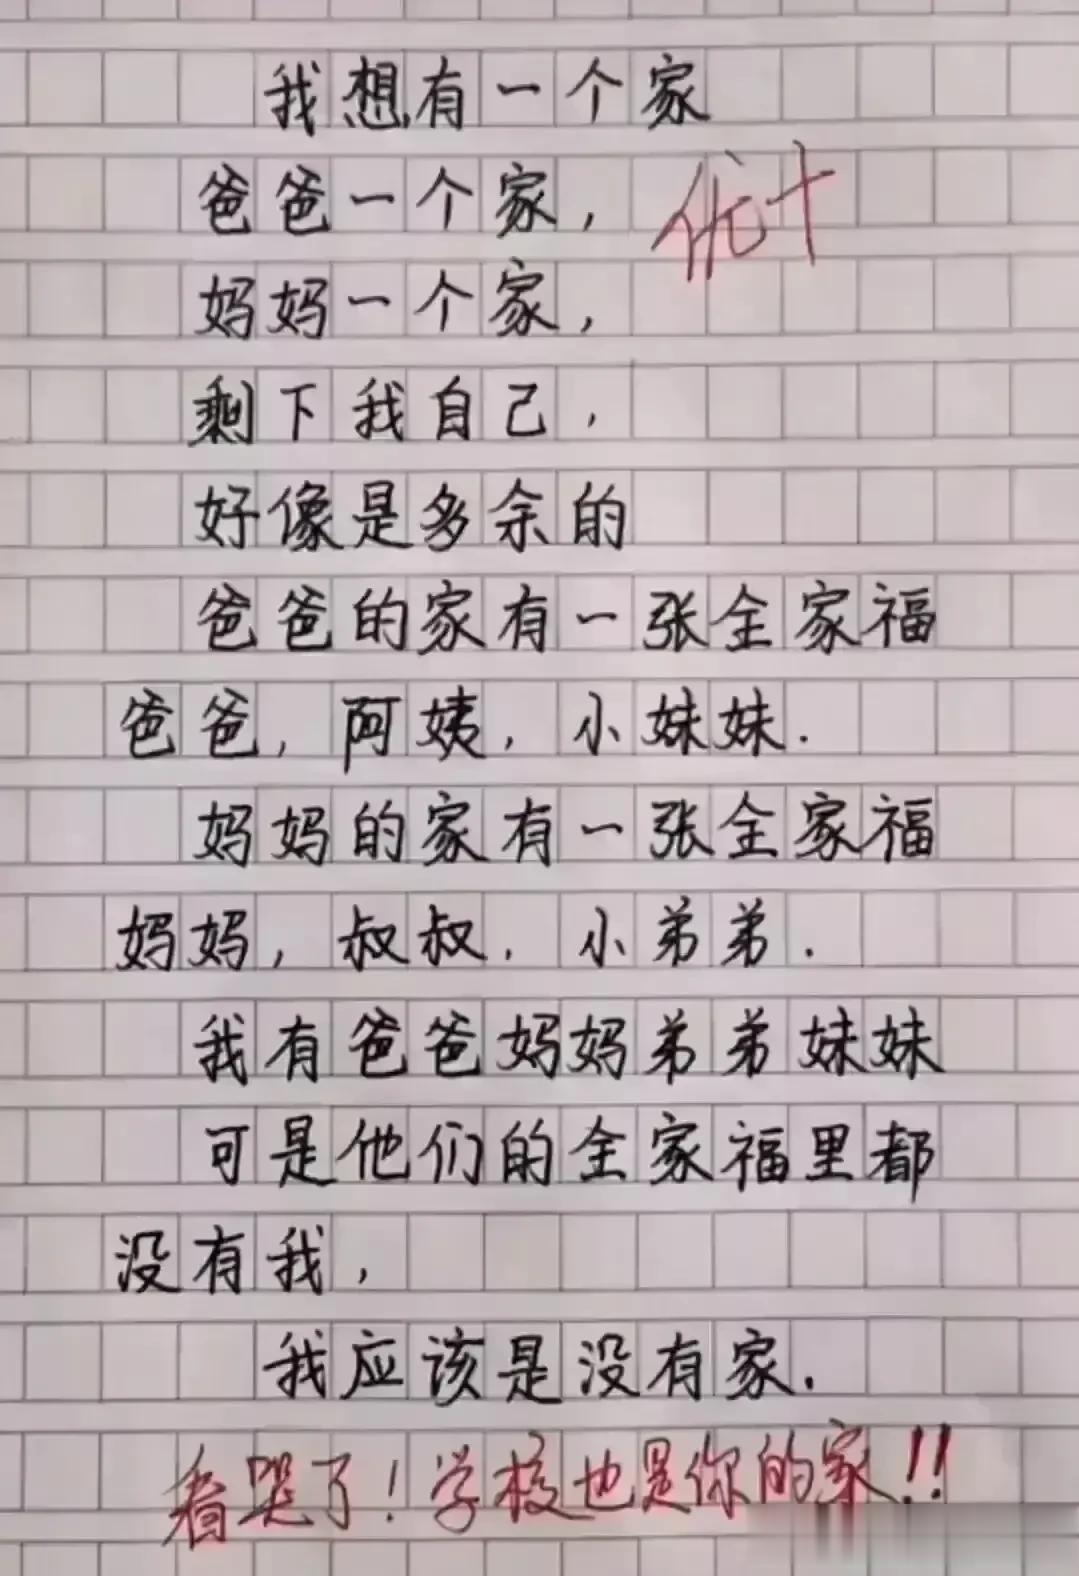 我想有一个家
爸爸一个家，
优+
妈妈一个家，
剩下我自己，
好像是多余的
爸爸的家有一张全家福
爸爸，阿姨，小妹妹.
妈妈的家有一张全家福
妈妈，叔叔，小弟弟.
我有爸爸妈妈弟弟妹妹
可是他们的全家福里都
没有我，
我应该是没有家.
看哭了！学校也是你的家!!